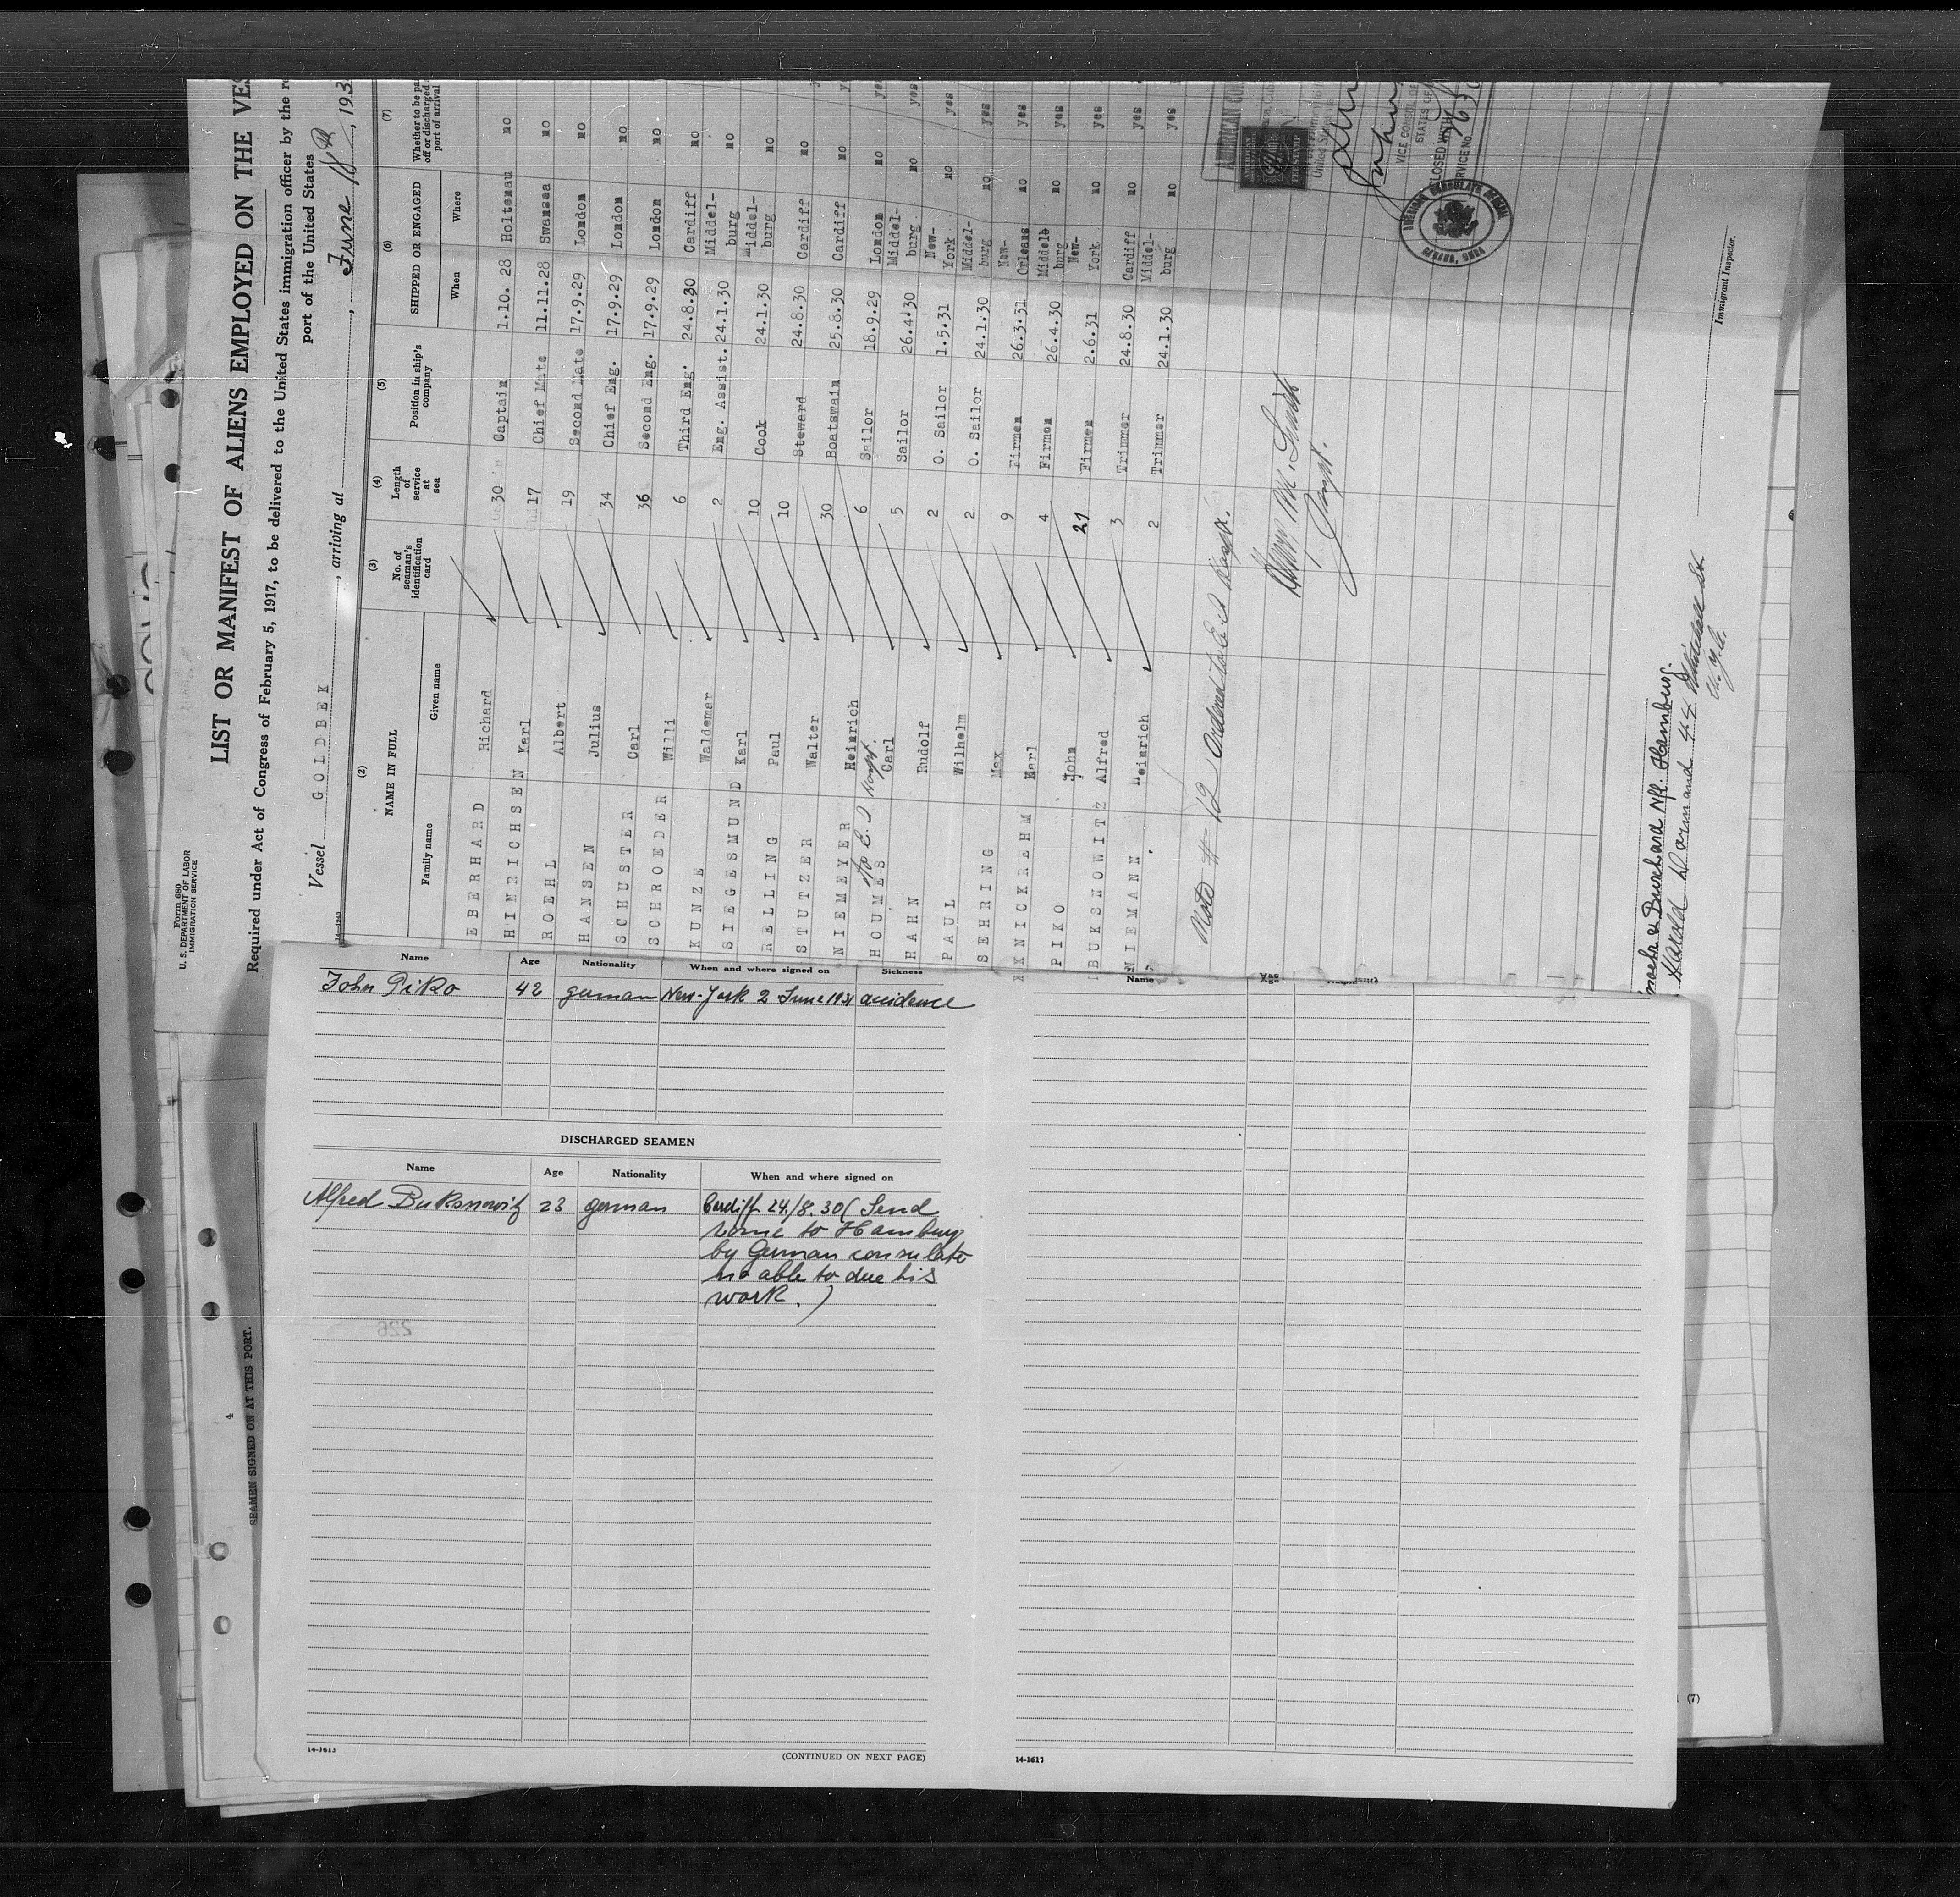 Form 680
U. S. DEPARTMENT OF LABOR
IMMIGRATION SERVICE
LIST OR MANIFEST OF ALIENS EMPLOYED ON THE VES
Required under Act of Congress of February 5, 1917, to be delivered to the United States immigration officer by the r
port of the United States
Vessel GOLDBEK, arriving at , June 18th, 193
(2) (3) (4) (5) (6) (7)
NAME IN FULL No. of seaman's identification card Length of service at sea Position in ship's company SHIPPED OR ENGAGED Whether to be pa off or discharged port of arrival
Family name Given name When Where
EBERHARD Richard 30 Captain 1.10.28 Holtenau no
HINRICHSEN Karl 17 Chief Mate 11.11.28 Swansea no
ROEHL Albert 19 Second Mate 17.9.29 London no
HANSEN Julius 34 Chief Eng. 17.9.29 London no
SCHUSTER Carl 36 Second Eng. 17.9.29 London no
SCHROEDER Willi 6 Third Eng. 24.8.30 Cardiff no
KUNZE Waldemar 2 Eng. Assist. 24.1.30 Middel-burg no
SIEGESMUND Karl 10 Cook 24.1.30 Middel-burg no
RELLING Paul 10 Steward 24.8.30 Cardiff no
STUTZER Walter 30 Boatswain 25.8.30 Cardiff no
NIEMEYER Heinrich 6 Sailor 18.9.29 London no yes
HOUMES Carl 5 Sailor 26.4.30 Middel-burg no yes
HAHN Rudolf 2 O. Sailor 1.5.31 New-York no yes
PAUL Wilhelm 2 O. Sailor 24.1.30 Middel-burg no yes
SEHRING Max 9 Firmen 26.3.31 New-Orleans no yes
KNICKREHM Karl 4 Firmen 26.4.30 Middelb burg no yes
PIKO John 21 Firmen 2.6.31 New-York no yes
BUKSNOWITZ Alfred 3 Trimmer 24.8.30 Cardiff no yes
NIEMANN Heinrich 2 Trimmer 24.1.30 Middel-burg no yes
to E. I Hospt.
Note # 12 Ordered to E I Hospt.
Insp.
AMERICAN CON
VICE CONSUL OF
STATES OF
SERVICE No
Burchard Nfl. Hamburg.
Harald Dormand 44 Whitehall St
N. Y. C.
Immigrant Inspector.
14-1240
Name Age Nationality When and where signed on Sickness
John Piko 42 german New-York 2 June 1931 accidence
DISCHARGED SEAMEN
Name Age Nationality When and where signed on
Alfred Buksnowitz 23 german Cardiff 24./8. 30 ( Send
home to Hamburg
by German consulate
no able to due his
work. )
226
14-1613
(CONTINUED ON NEXT PAGE)
Name Age
14-1617
4
SEAMEN SIGNED ON AT THIS PORT.
(7)